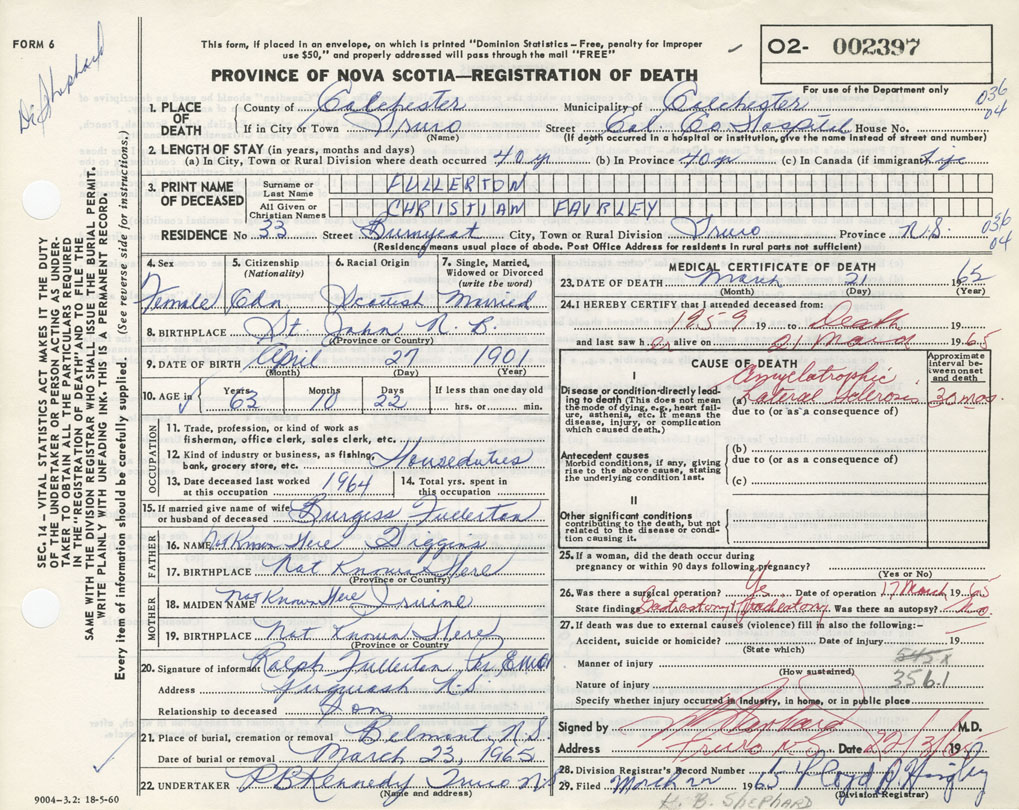 FORM 6
Dr Shephard
This form, if placed in an envelope, on which is printed "Dominion Statistics – Free, penalty for improper
use $50," and properly addressed will pass through the mail "FREE"
O2- 002397
For use of the Department only
PROVINCE OF NOVA SCOTIA—REGISTRATION OF DEATH
1. PLACE OF DEATH
County of Colchester Municipality of Colchester
036
04
If in City or Town Truro Street Col. Co Hospital House No.
(Name) (If death occurred in a hospital or institution, give the name instead of street and number)
2. LENGTH OF STAY (in years, months and days)
(a) In City, Town or Rural Division where death occurred 40 yr (b) In Province 40 yr (c) In Canada (if immigrant) Life
3. PRINT NAME OF DECEASED
Surname or Last Name FULLERTON
All Given or Christian Names CHRISTIAN FAIRLEY
RESIDENCE No 33 Street Bunyeat City, Town or Rural Division Truro Province N.S.
036
04
(Residence means usual place of abode. Post Office Address for residents in rural parts not sufficient)
4. Sex 5. Citizenship (Nationality) 6. Racial Origin 7. Single, Married, Widowed or Divorced (write the word)
Female Cdn Scotish Married
8. BIRTHPLACE St. John N. B.
(Province or Country)
9. DATE OF BIRTH April 27 1901
(Month) (Day) (Year)
10. AGE in Years Months Days If less than one day old
63 10 22 hrs. or min.
OCCUPATION
11. Trade, profession, or kind of work as
fisherman, office clerk, sales clerk, etc.
12. Kind of industry or business, as fishing,
bank, grocery store, etc. Houseduties
13. Date deceased last worked at this occupation 1964
14. Total yrs. spent in this occupation
15. If married give name of wife or husband of deceased Burgess Fullerton
FATHER
16. NAME Not Known Here Diggins
17. BIRTHPLACE Not Known Here
(Province or Country)
MOTHER
18. MAIDEN NAME Not Known Here Irvine
19. BIRTHPLACE Not Known Here
(Province or Country)
20. Signature of informant Ralph Fullerton Per
Address Pugwash N.S.
Relationship to deceased Son
21. Place of burial, cremation or removal Belmont N.S.
Date of burial or removal March 23, 1965
22. UNDERTAKER P B Kennedy Truro N.S.
(Name and address)
9004-3.2: 18-5-60
MEDICAL CERTIFICATE OF DEATH
23. DATE OF DEATH March 21 1965
(Month) (Day) (Year)
24. I HEREBY CERTIFY that I attended deceased from:
1959 19 to Death 19
and last saw her alive on 21 March 1965
CAUSE OF DEATH
Approximate interval between onset and death
I
Disease or condition directly leading to death (This does not mean the mode of dying, e.g., heart failure, asthenia, etc. It means the disease, injury, or complication which caused death.)
(a) Amyelatrophic Lateral Sclerosis 30 mos.
due to (or as a consequence of)
Antecedent causes
Morbid conditions, if any, giving rise to the above cause, stating the underlying condition last.
(b)
due to (or as a consequence of)
(c)
II
Other significant conditions
contributing to the death, but not related to the disease or condition causing it.
25. If a woman, did the death occur during
pregnancy or within 90 days following pregnancy?
(Yes or No)
26. Was there a surgical operation? Yes Date of operation 17 March 1965
State findings Gastrostomy Tracheotomy. Was there an autopsy? No.
27. If death was due to external causes (violence) fill in also the following:–
Accident, suicide or homicide? Date of injury 19
(State which)
Manner of injury
(How sustained)
Nature of injury
545X
356.1
Specify whether injury occurred in industry, in home, or in public place
Signed by Shephard M.D.
Address Truro N.S. Date 22/3/ 19
28. Division Registrar's Record Number 65
29. Filed March 22 1965 Lloyd
(Division Registrar)
R. B. SHEPHARD
SEC. 14 – VITAL STATISTICS ACT MAKES IT THE DUTY
OF THE UNDERTAKER OR PERSON ACTING AS UNDER-
TAKER TO OBTAIN ALL THE PARTICULARS REQUIRED
IN THE "REGISTRATION OF DEATH" AND TO FILE THE
SAME WITH THE DIVISION REGISTRAR WHO SHALL ISSUE THE BURIAL PERMIT.
WRITE PLAINLY WITH UNFADING INK. THIS IS A PERMANENT RECORD.
Every item of information should be carefully supplied. (See reverse side for instructions.)